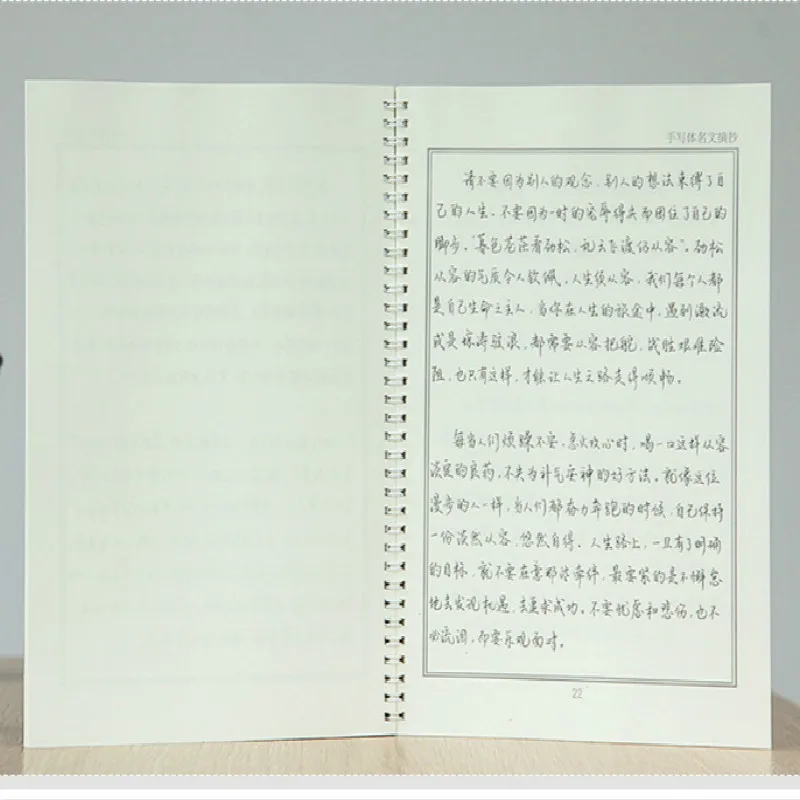 手写体名文摘抄
请不要因为别人的观念、别人的想法来得了自
己的人生。不要因为一时的宠辱得失而困住了自己的
脚步。“暮色苍茫看劲松，乱云飞渡仍从容”。劲松
从容的气质令人钦佩，人生须从容，我们每个人都
是自己生命之主人，当你在人生的旅途中，遇到激流
或是惊涛骇浪，都需要从容把舵，战胜艰难险
阻，也只有这样，才能让人生之路走得顺畅。
每当人们烦躁不安、急火攻心时，喝一口这样从容
淡定的良药，不失为补气安神的好方法。就像这位
漫步的人一样，当人们都奋力奔跑的时候，自己保持
一份淡然从容，悠然自得。人生路上，一旦有了明确
的目标，就不要在意那些牵绊，最要紧的是不懈怠
地去发现机遇，去追求成功。不要忧虑和悲伤，也不
必流泪，而要乐观面对。
22